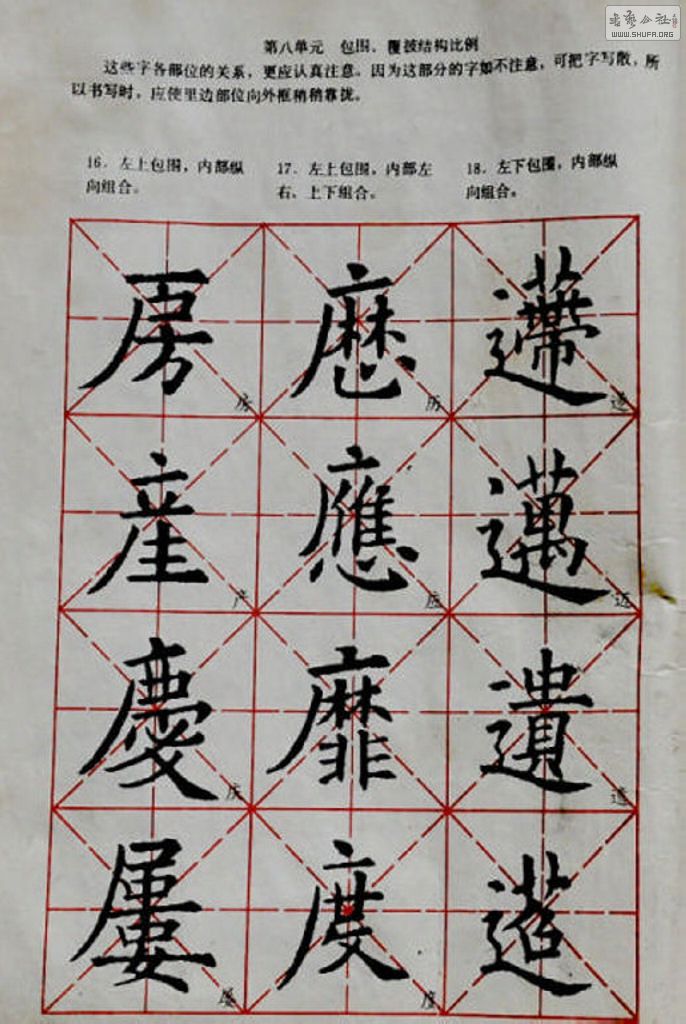 书艺公社
WWW.SHUFA.ORG
第八单元 包围、覆披结构比例
这些字各部位的关系，更应认真注意。因为这部分的字如不注意，可把字写散，所
以书写时，应使里边部位向外框稍稍靠拢。
16. 左上包围，内部纵
向组合。
17. 左上包围，内部左
右、上下组合。
18. 左下包围，内部纵
向组合。
房 房 历 遰
產 产 應 应 邁 迈
慶 庆 靡 遺 遗
屢 屡 度 度